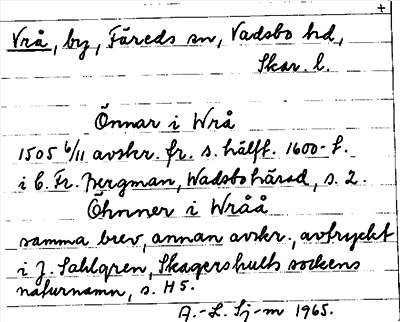 +
Vrå, by, Färeds sn, Vadsbo hd,
Skar. l.
Önnar i Wrå
1505 6/11 avskr. fr. s. hälft. 1600-t.
i C. Fr. Bergman, Wadsbo härad, s. 2.
Öhnner i Wråå
samma brev, annan avskr., avtryckt
i J. Sahlgren, Skagershults sockens
naturnamn, s. H5.
A.-L. Sj-m 1965.